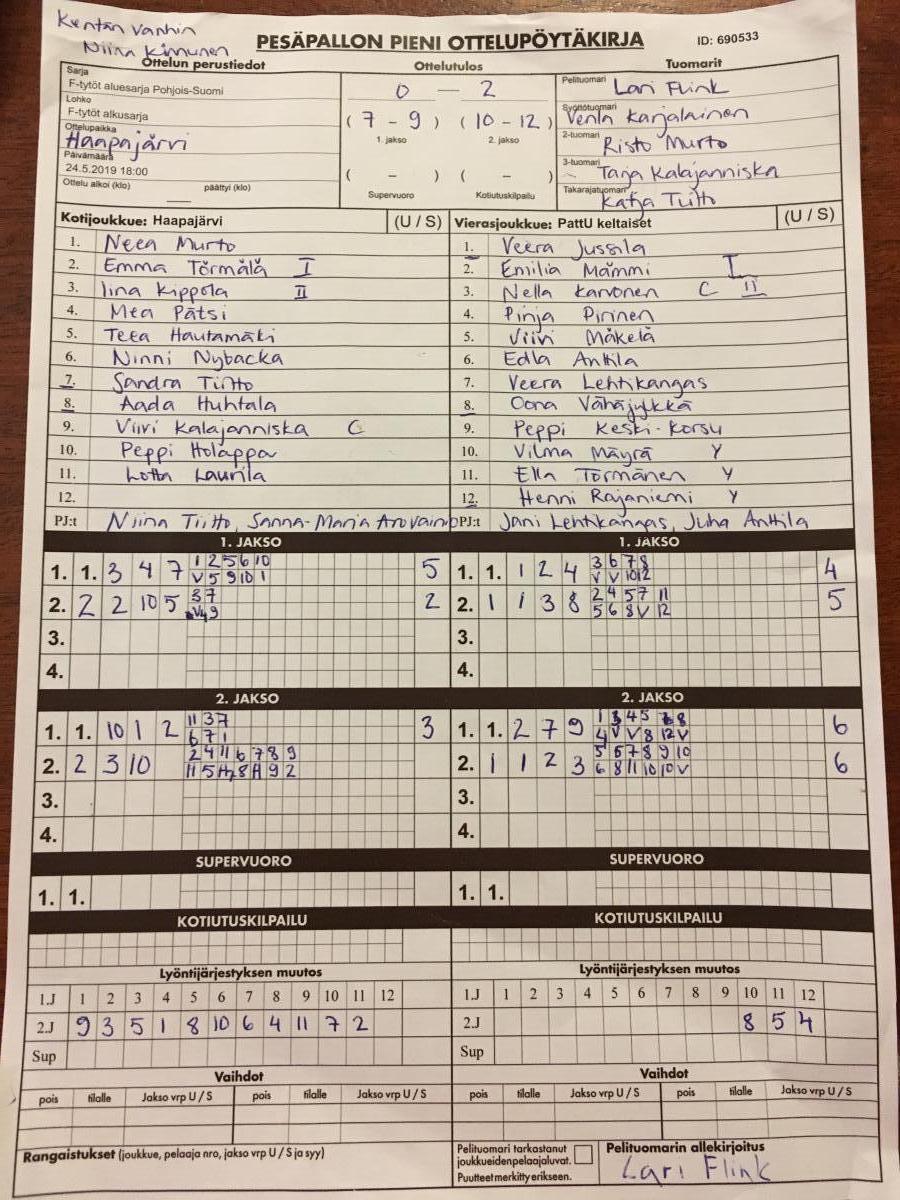 Kentän vanhin
Niina Kinnunen
PESÄPALLON PIENI OTTELUPÖYTÄKIRJA
ID: 690533
Ottelun perustiedot
Sarja
F-tytöt aluesarja Pohjois-Suomi
Lohko
F-tytöt alkusarja
Ottelupaikka
Haapajärvi
Päivämäärä
24.5.2019 18:00
Ottelu alkoi (klo) päättyi (klo)
Ottelutulos
0 — 2
(7 - 9) (10 - 12)
1. jakso 2. jakso
( - ) ( - )
Supervuoro Kotiutuskilpailu
Tuomarit
Pelituomari Lari Flink
Syöttötuomari Venla Karjalainen
2-tuomari Risto Murto
3-tuomari Tarja Kalajanniska
Takarajatuomari Katja Tiitto
Kotijoukkue: Haapajärvi (U / S)
1. Neea Murto
2. Emma Törmälä I
3. Iina Kippola II
4. Mea Pätsi
5. Teea Hautamäki
6. Ninni Nybacka
7. Sandra Tiitto
8. Aada Huhtala
9. Viivi Kalajanniska C
10. Peppi Holappa
11. Lotta Laurila
12.
PJ:t Niina Tiitto, Sanna-Maria Arovainio
Vierasjoukkue: PattU keltaiset (U / S)
1. Veera Jussila
2. Emilia Mämmi I
3. Nella Karvonen C II
4. Pinja Pirinen
5. Viivi Mäkelä
6. Edla Anttila
7. Veera Lehtikangas
8. Oona Vähäjylkkä
9. Peppi Keski-Korsu
10. Vilma Mäyrä Y
11. Ella Törmänen Y
12. Henni Rajaniemi Y
PJ:t Jani Lehtikangas, Juha Anttila
1. JAKSO
1. 1. 3 4 7 1 2 5 6 10 5
V 5 9 10 1
2. 2 2 10 5 3 7 2
3.
4.
1. JAKSO
1. 1. 1 2 4 3 6 7 8 4
V V 10 12
2. 1 1 3 8 2 4 5 7 11 5
5 6 8 V 12
3.
4.
2. JAKSO
1. 1. 10 1 2 11 3 7 3
6 7 1
2. 2 3 10 2 4 11 6 7 8 9
3.
4.
2. JAKSO
1. 1. 2 7 9 6
4 V V 8 12 V
2. 1 1 2 3 5 6 7 8 9 10 6
6 8 11 10 10 V
3.
4.
SUPERVUORO
1. 1.
SUPERVUORO
1. 1.
KOTIUTUSKILPAILU
KOTIUTUSKILPAILU
Lyöntijärjestyksen muutos
1.J 1 2 3 4 5 6 7 8 9 10 11 12
2.J 9 3 5 1 8 10 6 4 11 7 2
Sup
Lyöntijärjestyksen muutos
1.J 1 2 3 4 5 6 7 8 9 10 11 12
2.J 8 5 4
Sup
Vaihdot
pois tilalle Jakso vrp U / S pois tilalle Jakso vrp U / S
Vaihdot
pois tilalle Jakso vrp U / S pois tilalle Jakso vrp U / S
Rangaistukset (joukkue, pelaaja nro, jakso vrp U / S ja syy)
Pelituomari tarkastanut
joukkueidenpelaajaluvat.
Puutteet merkitty erikseen.
Pelituomarin allekirjoitus
Lari Flink